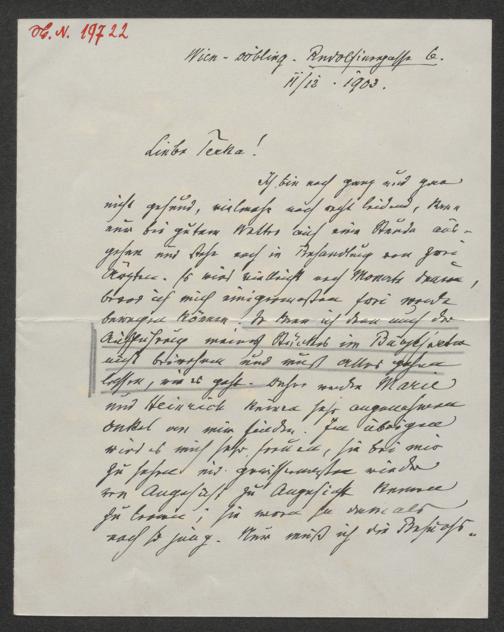 H. N. 19722
Wien-Döbling. Rudolfinergasse 6.
11/12. 1903.
Liebe Terka!
Ich bin noch ganz und gar
nicht gesund, vielmehr noch recht leidend, kann
nur bei gutem Wetter auf eine Stunde aus-
gehen und stehe noch in Behandlung von zwei
Ärzten. Es wird vielleicht noch Monate dauern,
bevor ich mich einigermassen frei werde
bewegen können. So kann ich denn auch der
Aufführung meines Stückes im Burgtheater
nicht beiwohnen und muß alles gehen
lassen, wie es geht. Daher werden Marie
und Heinrich keinen sehr angenehmen
Onkel an mir finden. Im übrigen
wird es mich sehr freuen, sie bei mir
zu sehen und gewissermassen wieder
von Angesicht zu Angesicht kennen
zu lernen; sie waren ja damals
noch so jung. Nur muß ich die Besuchs-